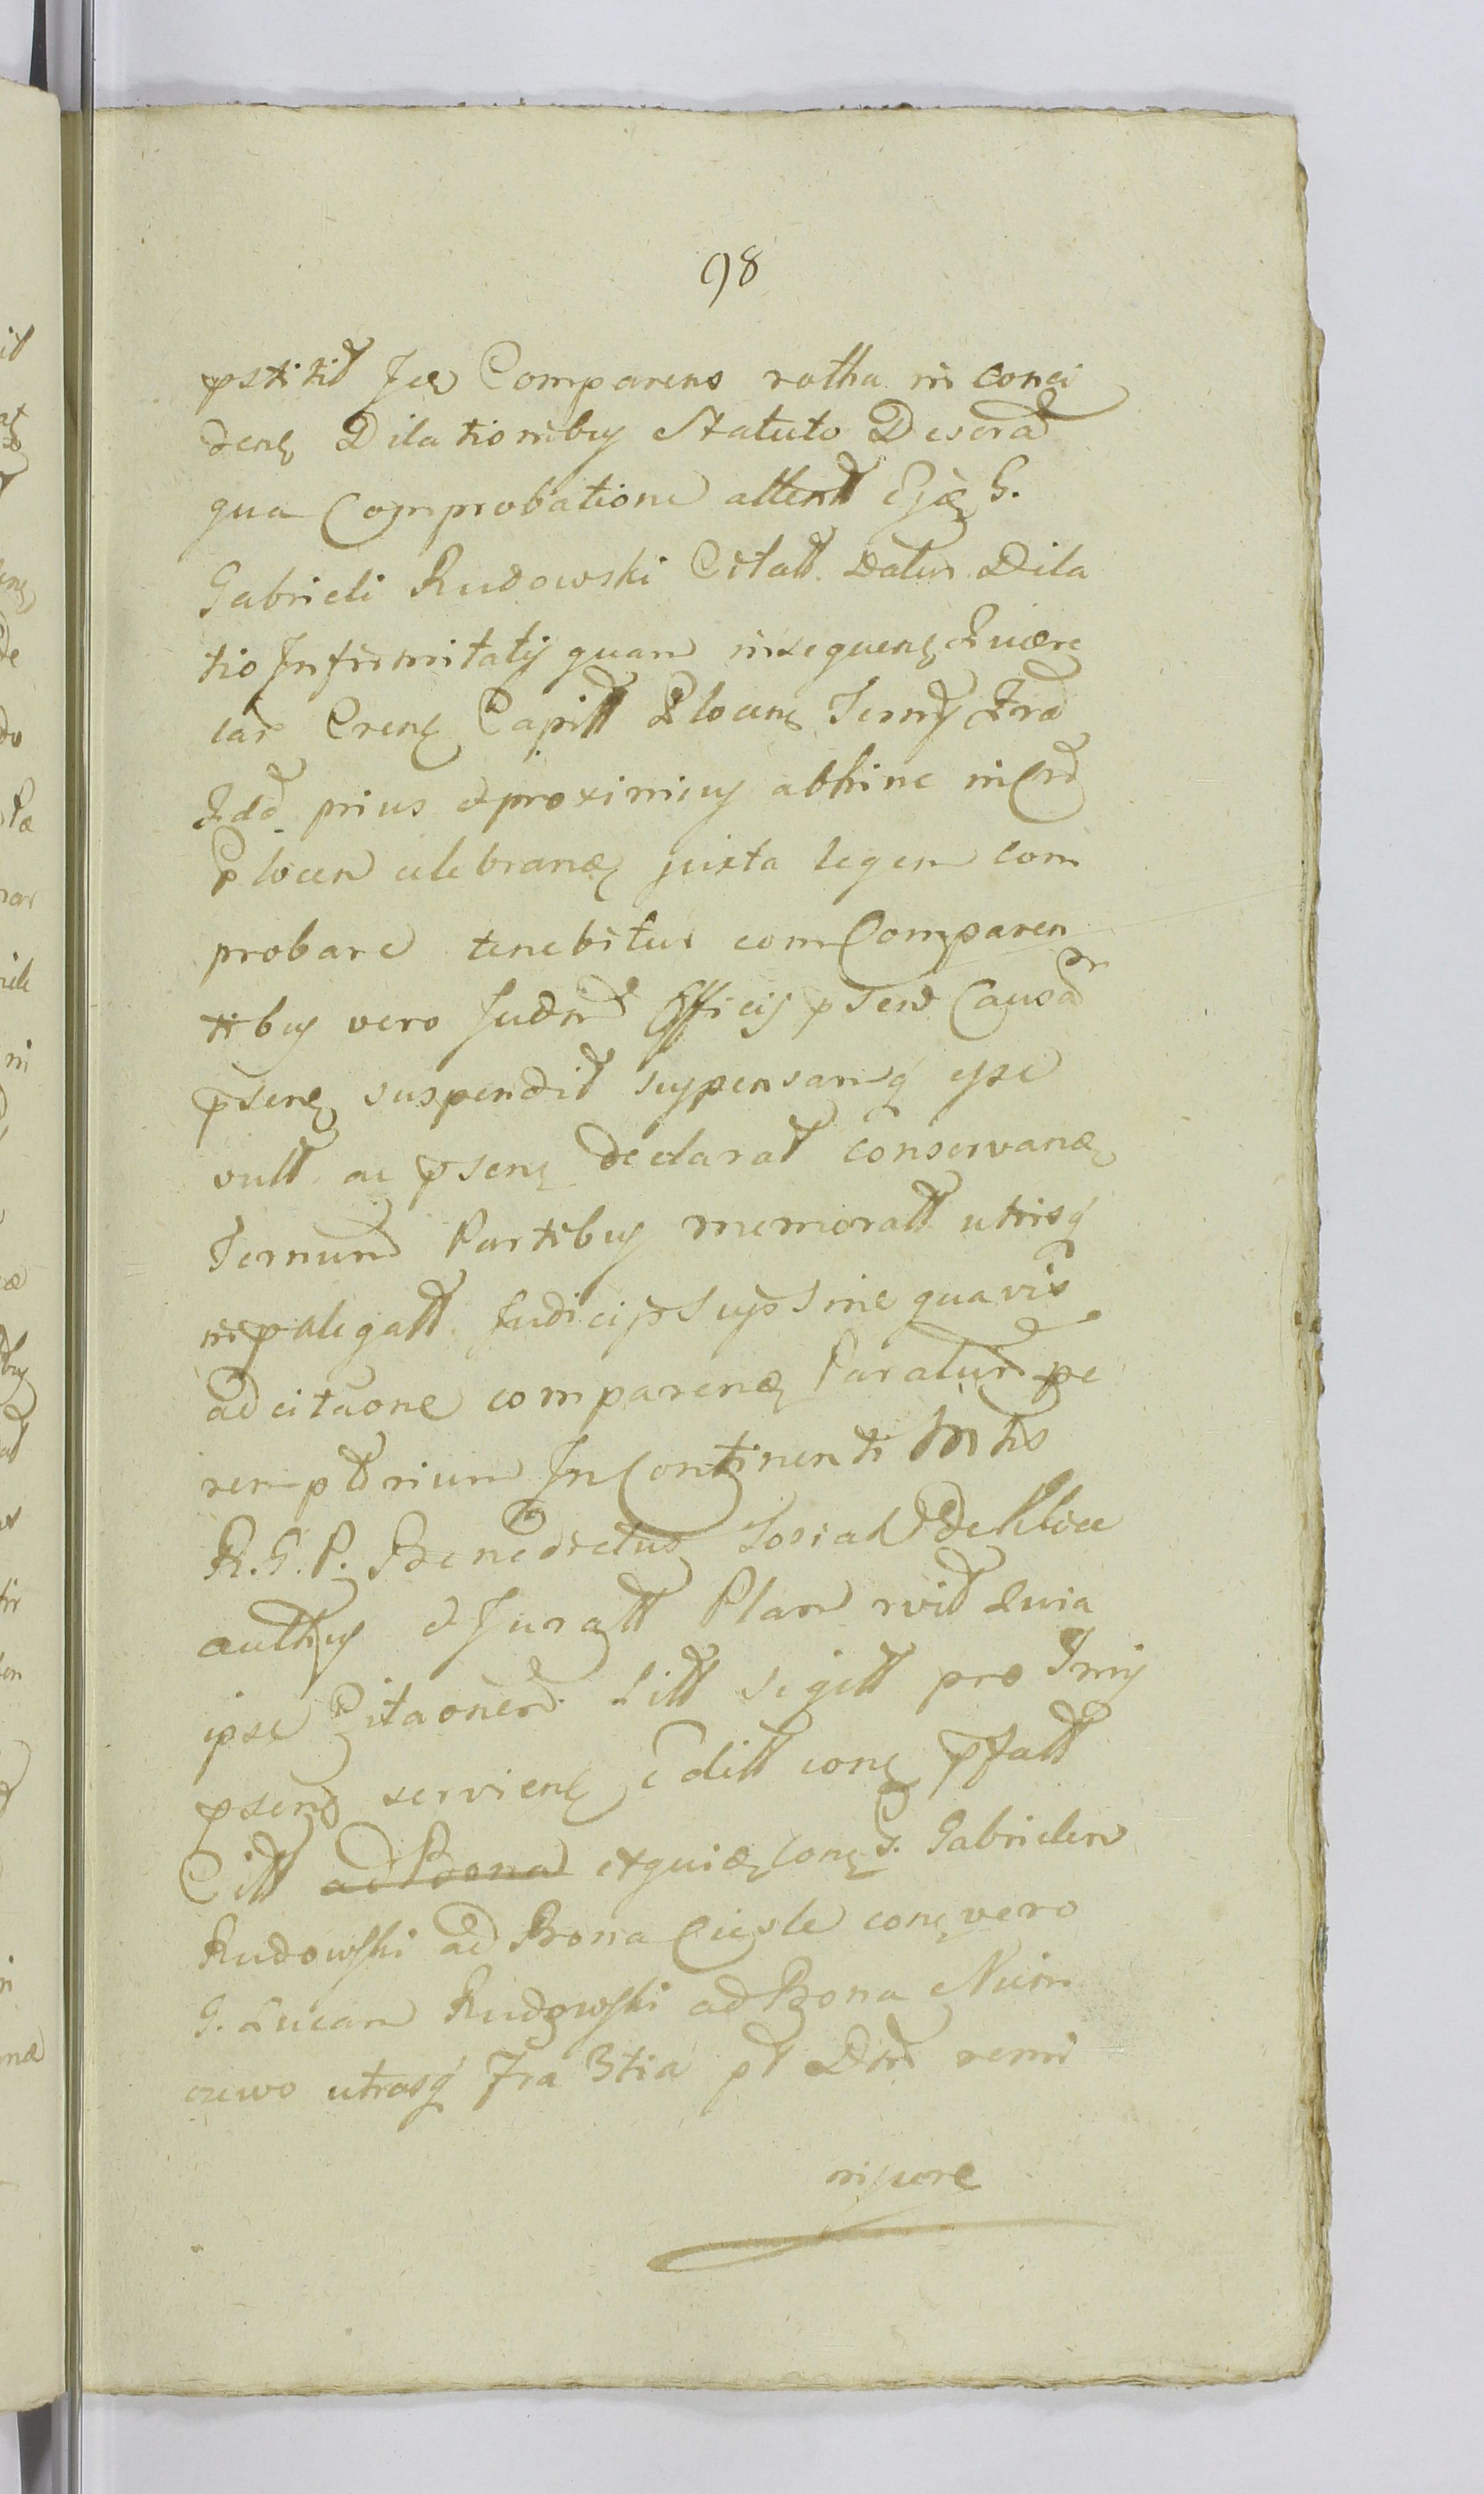 98
pstitit Jes Comparens rotha in conci
denę Dilationibus Statuto Deserat
qua Comprobatione attent Ejdę G.
Gabrieli Rudowski Citatt. Datur Dila
tio Infirmitatis quam insequenę
car Crenę Capitt Plocenę Termy
prius et proximius abhinc in Crd
Plocen celebrandę juxta legem com
probare tenebitur com Comparen
tibus vero Judm Officii psens Causam
psenę suspendit suspensamq esse
vult ac psenę declarat conservandę
Ternum Partibus memoratt utrisq
in palegatt. Judiciis suis sine quavis
adcitaone comparendę Paratum pe
remptorium In Continenti Mtis
R. G. P. Benedictus Tosiak de Plice
authus et Juratt Plane rvit Quia
ipse Citaonem Litt sigill pro Tmis
psenę servienę Edill conę pfatt
Citt ad Bona et quidę conę G. Gabrielem
Rudowski ad Bona Ciesle conę vero
G. Lucam Rudowski ad Bona Nuin
czewo utrasq Fra 3tia pt Dm remi
ni jure